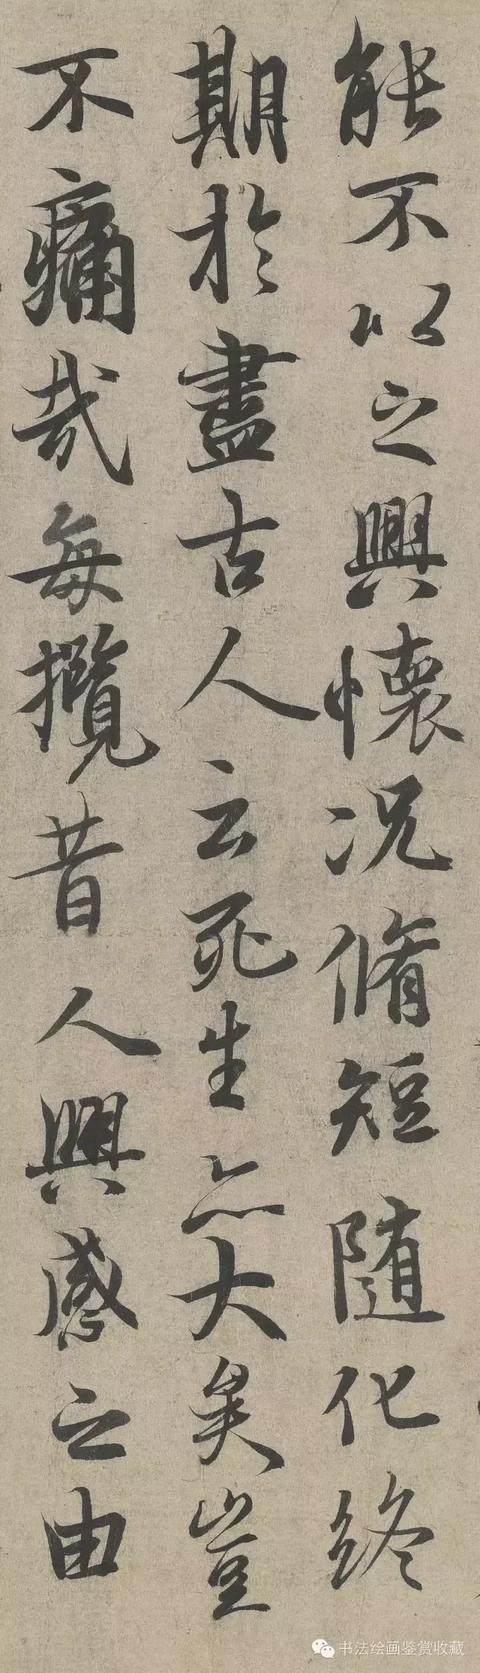 能不以之興懷況脩短隨化終
期於盡古人云死生亦大矣豈
不痛哉每攬昔人興感之由
书法绘画鉴赏收藏